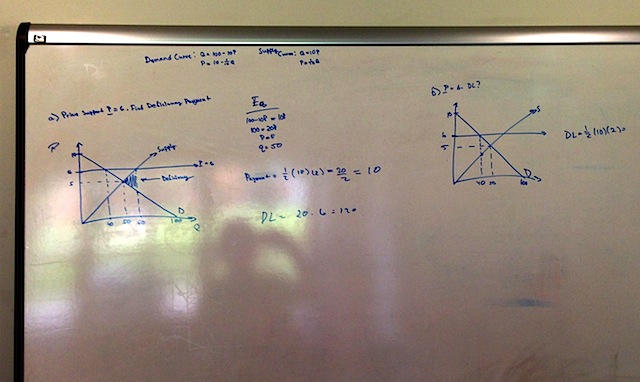 Demand Curve: Q = 100-10P
P = 10-1/10Q
Supply Curve: Q=10P
P=1/10Q
a) Price Support P = 6. Find Deficiency Payment
P
10
6
5
Supply
P=6
Deficiency
40 50 60 100
D
Q
Eq
100-10P = 10P
100 = 20P
P=5
q=50
Payment = 1/2 (10)(2) = 20/2 = 10
DL = 20 · 6 = 120
b) P = 6. DL?
10
6
5
S
40 50 100
D
DL = 1/2 (10)(2) =